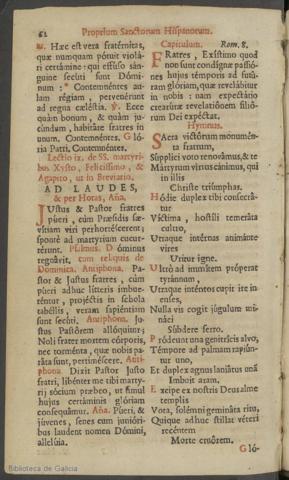 62 Proprium Sanctorum Hispanorum.
℟. Hæc est vera fratérnitas,
quæ numquam pótuit violá-
ri certámine: qui effúso sán-
guine secúti sunt Dómi-
num: * Contemnéntes au-
lam régiam, pervenérunt
ad regna cæléstia. ℣. Ecce
quàm bonum, & quàm ju-
cúndum, habitáre fratres in
unum. Contemnéntes. Gló-
ria Patri. Contemnéntes.
Lectio ix. de SS. martyri-
bus Xysto, Felicissimo, &
Agapito, ut in Breviario.
AD LAUDES,
& per Horas, Aña.
JUstus & Pastor fratres
púeri, cùm Præsidis sæ-
vítiam víri perhorréscerent;
spontè ad martýrium cucur-
rérunt. Psalmus. Dóminus
regnávit, cum reliquis de
Dominica. Antiphona. Pa-
stor & Justus fratres, cùm
púeri adhuc lítteris imbue-
réntur, projéctis in schola
tabéllis, veram sapiéntiam
sunt secúti. Antiphona. Ju-
stus Pastórem allóquitur;
Noli frater mortem córporis,
nec torménta, quæ nobis pa-
ráta sunt, pertiméscere. Anti-
phona. Dixit Pastor Justo
fratri, libénter me tibi marty-
rij sócium præbeo, ut simul
hujus certáminis glóriam
consequámur. Aña. Púeri, &
júvenes, senes cum junióri-
bus laudent nomen Dómini,
allelúia.
Capitulum. Rom. 8.
FRatres, Exístimo quod
non sunt condígnæ passió-
nes hujus témporis ad futú-
ram glóriam, quæ revelábitur
in nobis: nam expectátio
creatúræ revelatiónem filió-
rum Dei expéctat.
Hymnus.
SAcra victórum monumén-
ta fratrum,
Súpplici voto renovámus, & te
Mártyrum virtus cánimus, qui
in illis
Christe triúmphas.
Hódie duplex tibi consecrá-
tur
Víctima, hostíli temeráta
cultro,
Utráque intérnas animánte
vires
Uritur igne.
Ultrò ad immítem próperat
tyránnum,
Utráque inténtos cupit ire in
enses,
Nulla vis cogit júgulum mi-
náci
Súbdere ferro.
Pródeunt una genitrícis alvo,
Témpore ad palmam rapiún-
tur uno,
Et duplex agnus laniátus una
Imbuit aram.
Excipe ex nostris Deus alme
templis
Vota, solémni gemináta ritu,
Quique adhuc stillat véteri
recéntem
Morte cruórem.
Gló-
Biblioteca de Galicia